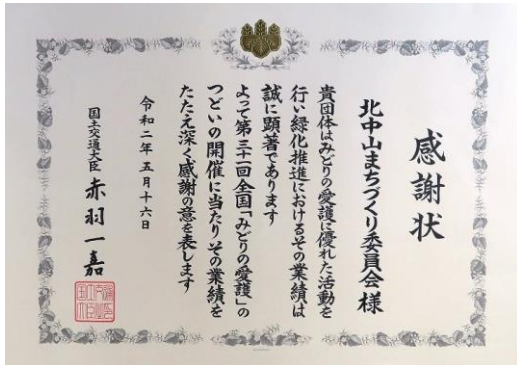 感謝状
北中山まちづくり委員会 様
貴団体はみどりの愛護に優れた活動を
行い緑化推進におけるその業績は
誠に顕著であります
よって第三十一回全国「みどりの愛護」の
つどいの開催に当たりその業績を
たたえ深く感謝の意を表します
令和二年五月十六日
国土交通大臣 赤羽一嘉